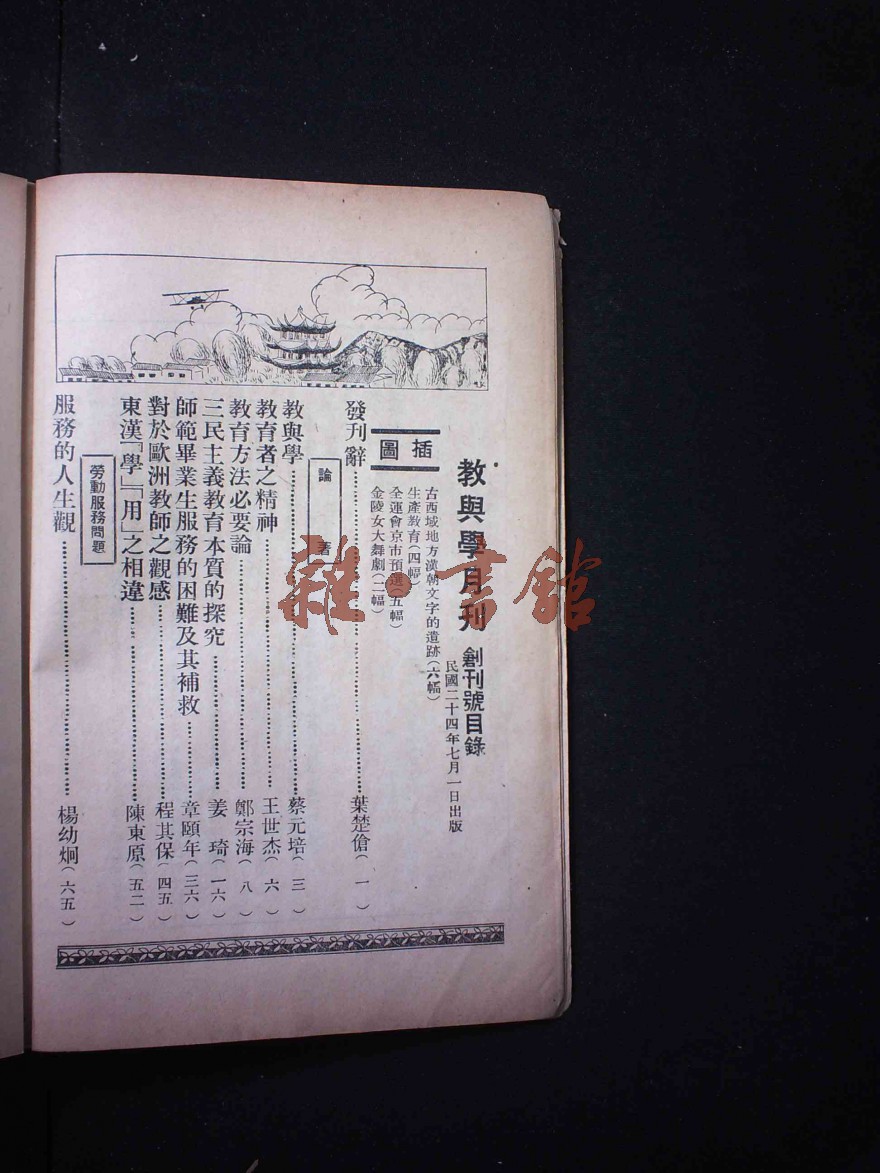 教與學月刊 創刊號目錄
民國二十四年七月一日出版
插圖
古西域地方漢朝文字的遺跡(六幅)
生產教育(四幅)
全運會京市預選(五幅)
金陵女大舞劇(二幅)
發刊辭…………葉楚傖(一)
論著
教與學…………蔡元培(三)
教育者之精神…………王世杰(六)
教育方法必要論…………鄭宗海(八)
三民主義教育本質的探究…………姜琦(一六)
師範畢業生服務的困難及其補救…………章頤年(三六)
對於歐洲教師之觀感…………程其保(四五)
東漢「學」「用」之相違…………陳東原(五二)
勞動服務問題
服務的人生觀…………楊幼炯(六五)
雜·書館